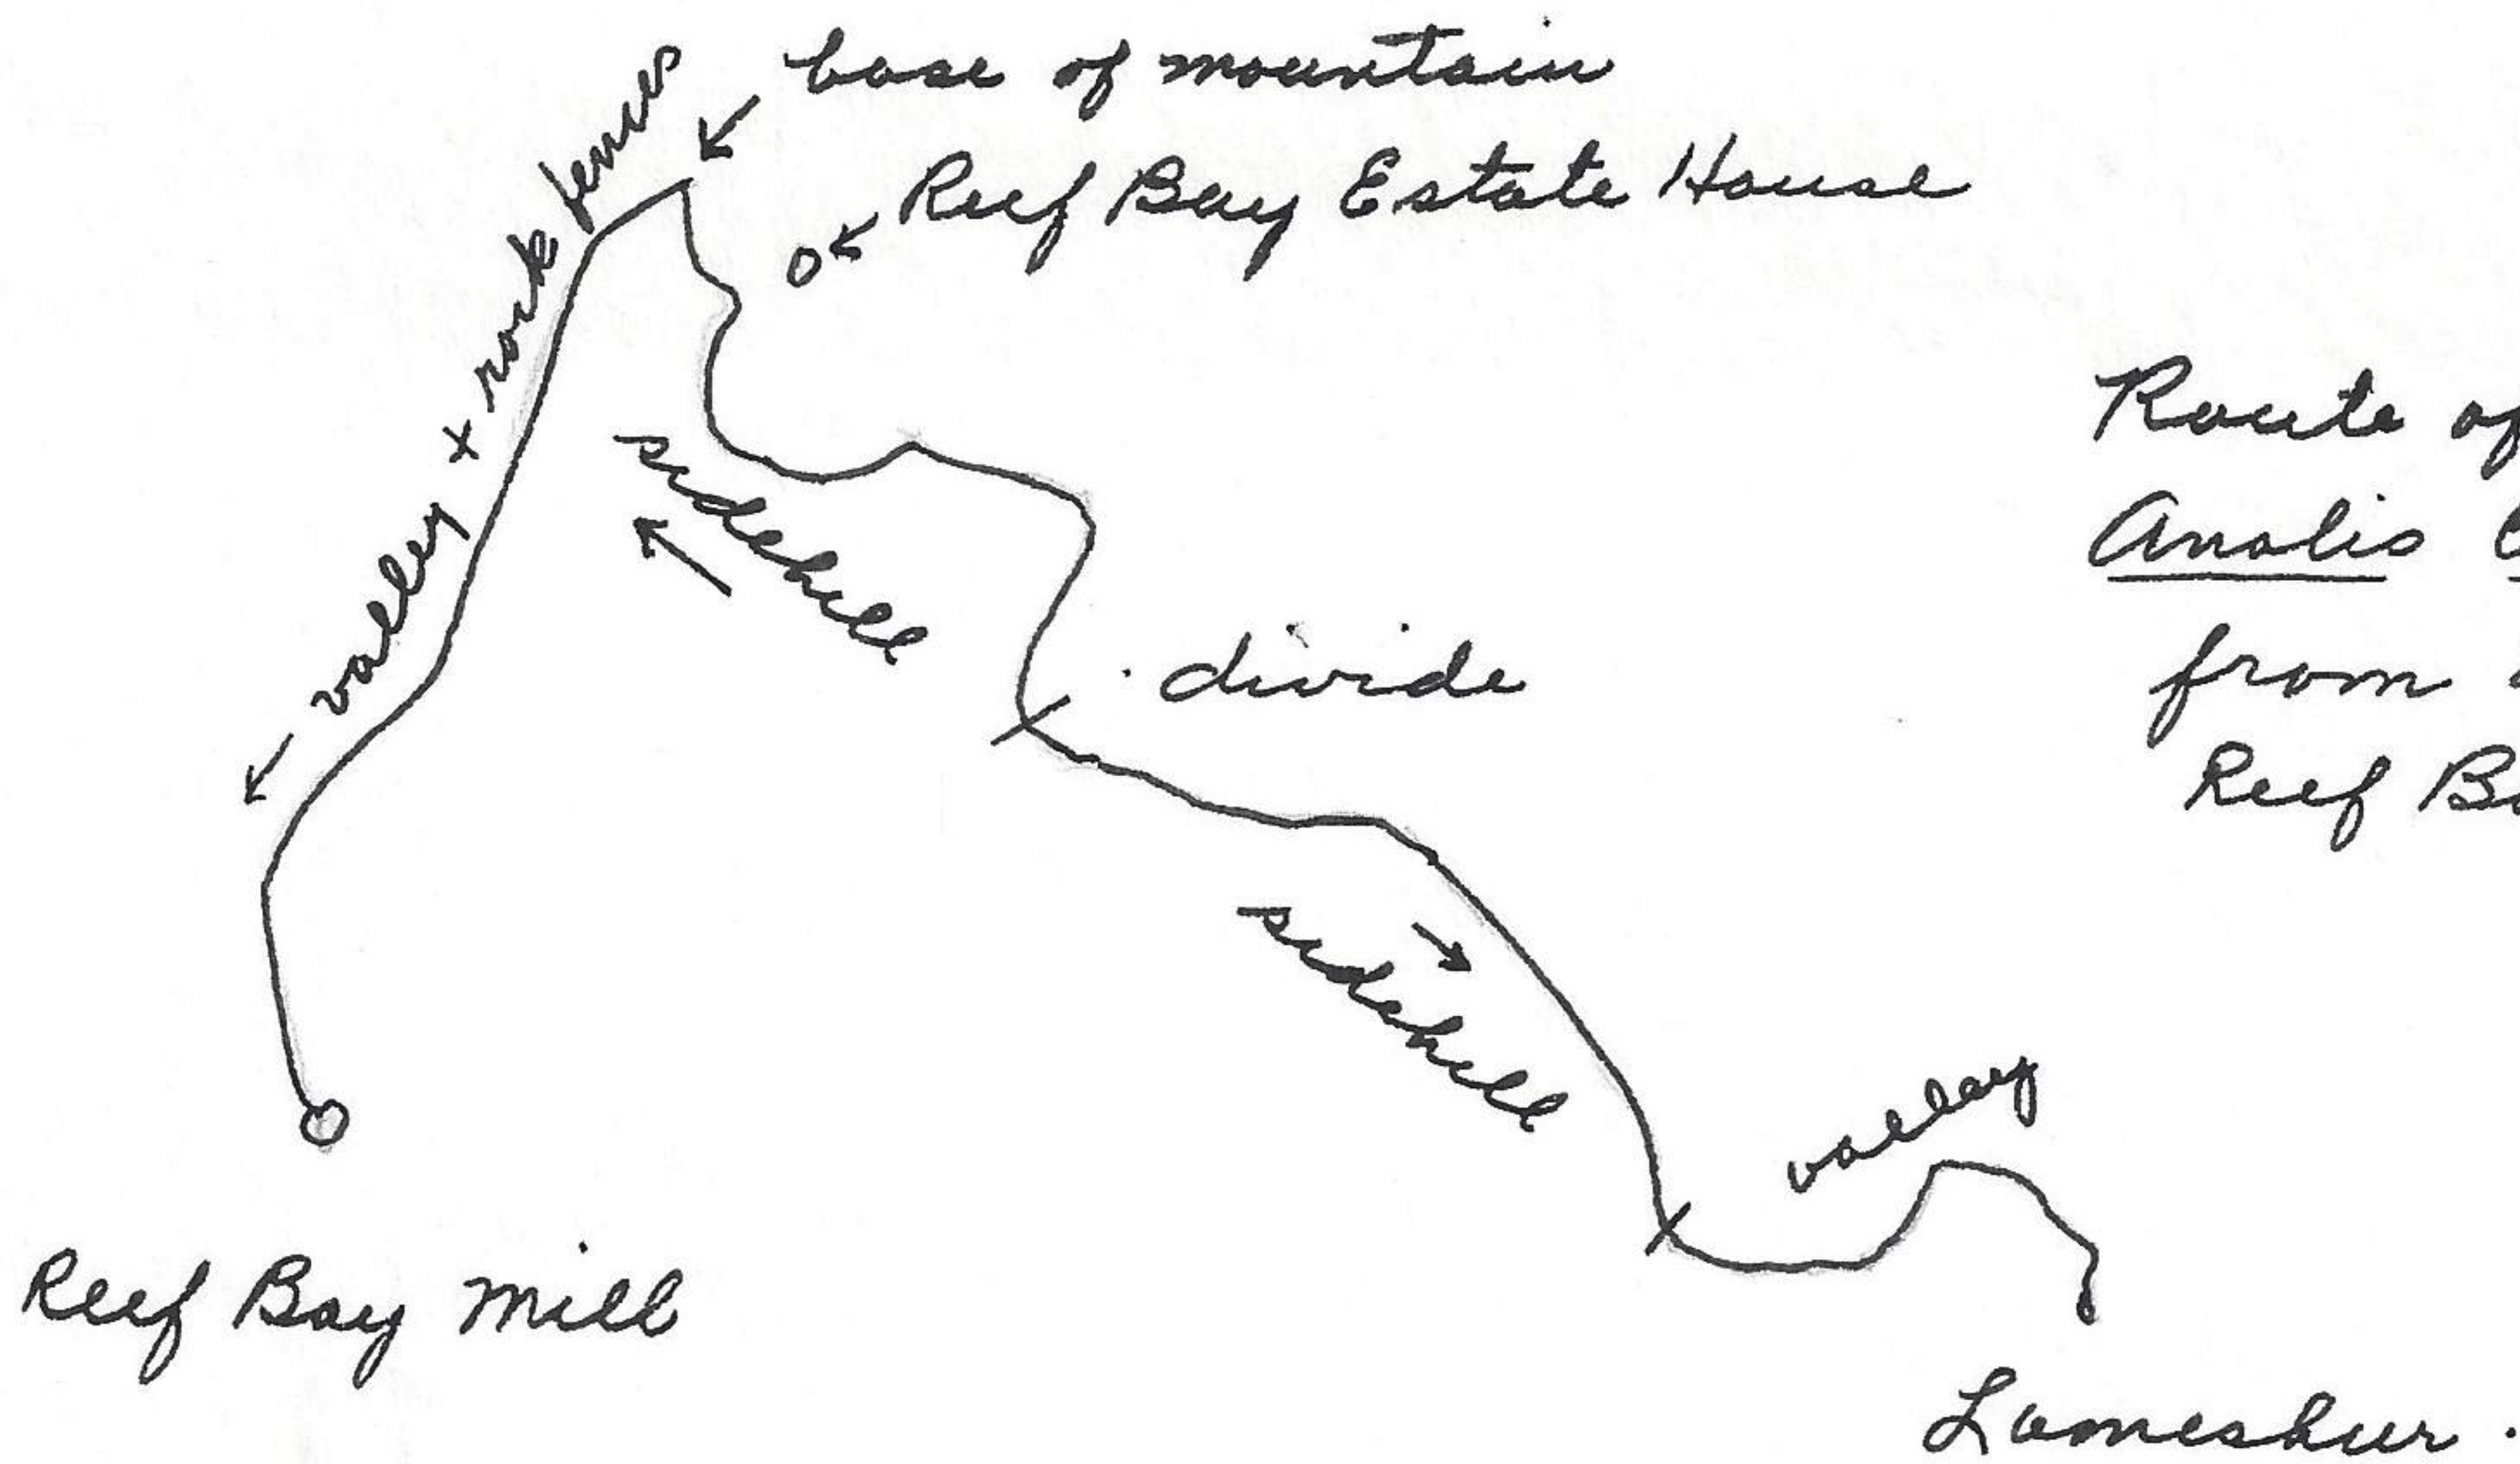 base of mountain
Reef Bay Estate House
valley + rock
sidehill
divide
sidehill
valley
Reef Bay Mill
Lameshur.
Route of
Anolis
from
Reef